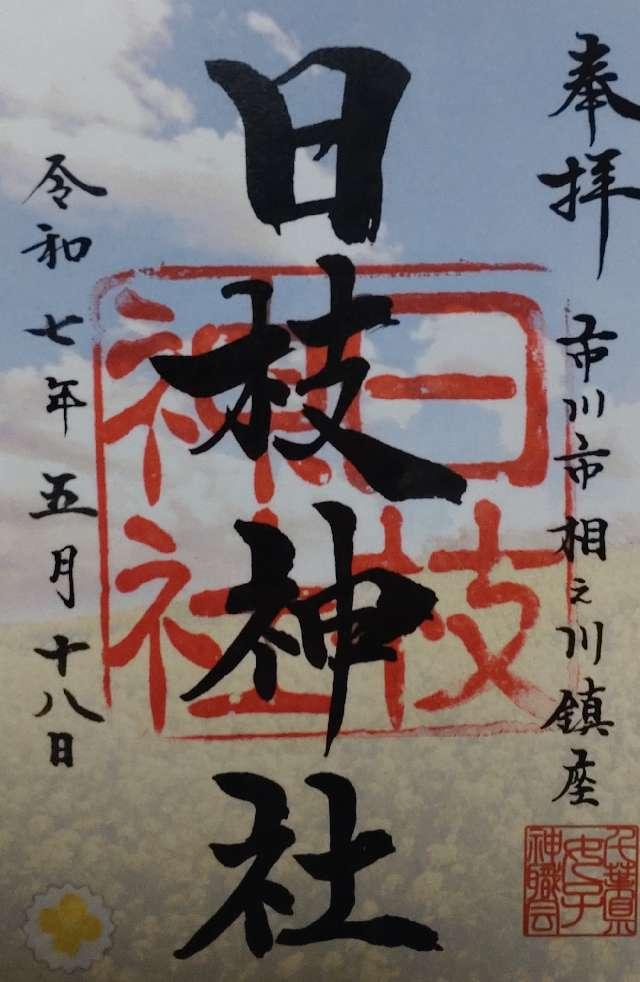 奉拝
市川市相之川鎮座
日枝神社
令和七年五月十八日
日枝
神社
千葉県
女子
神職会